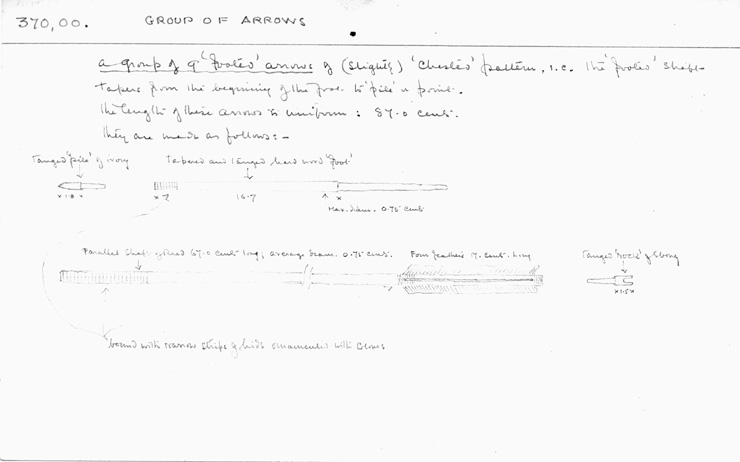 370,00. GROUP OF ARROWS
a group of 9 'footed' arrows of (slightly) 'Chested' pattern, i.e. the 'footed' shaft
tapers from the beginning of the foot to 'pile' or point.
The length of these arrows is uniform: 87.0 cents.
They are made as follows:—
Tanged 'pile' of ivory
Tapered and tanged hard wood 'foot'
x 1.8 x
x 7
16.7
x
Max. diam. 0.75 cents
Parallel shaft of Reed 67.0 cents long, average diam. 0.75 cents.
Four feathers 17. cents. long
Tanged 'nock' of Ebony
x 1.5 x
bound with narrow strips of hide ornamented with